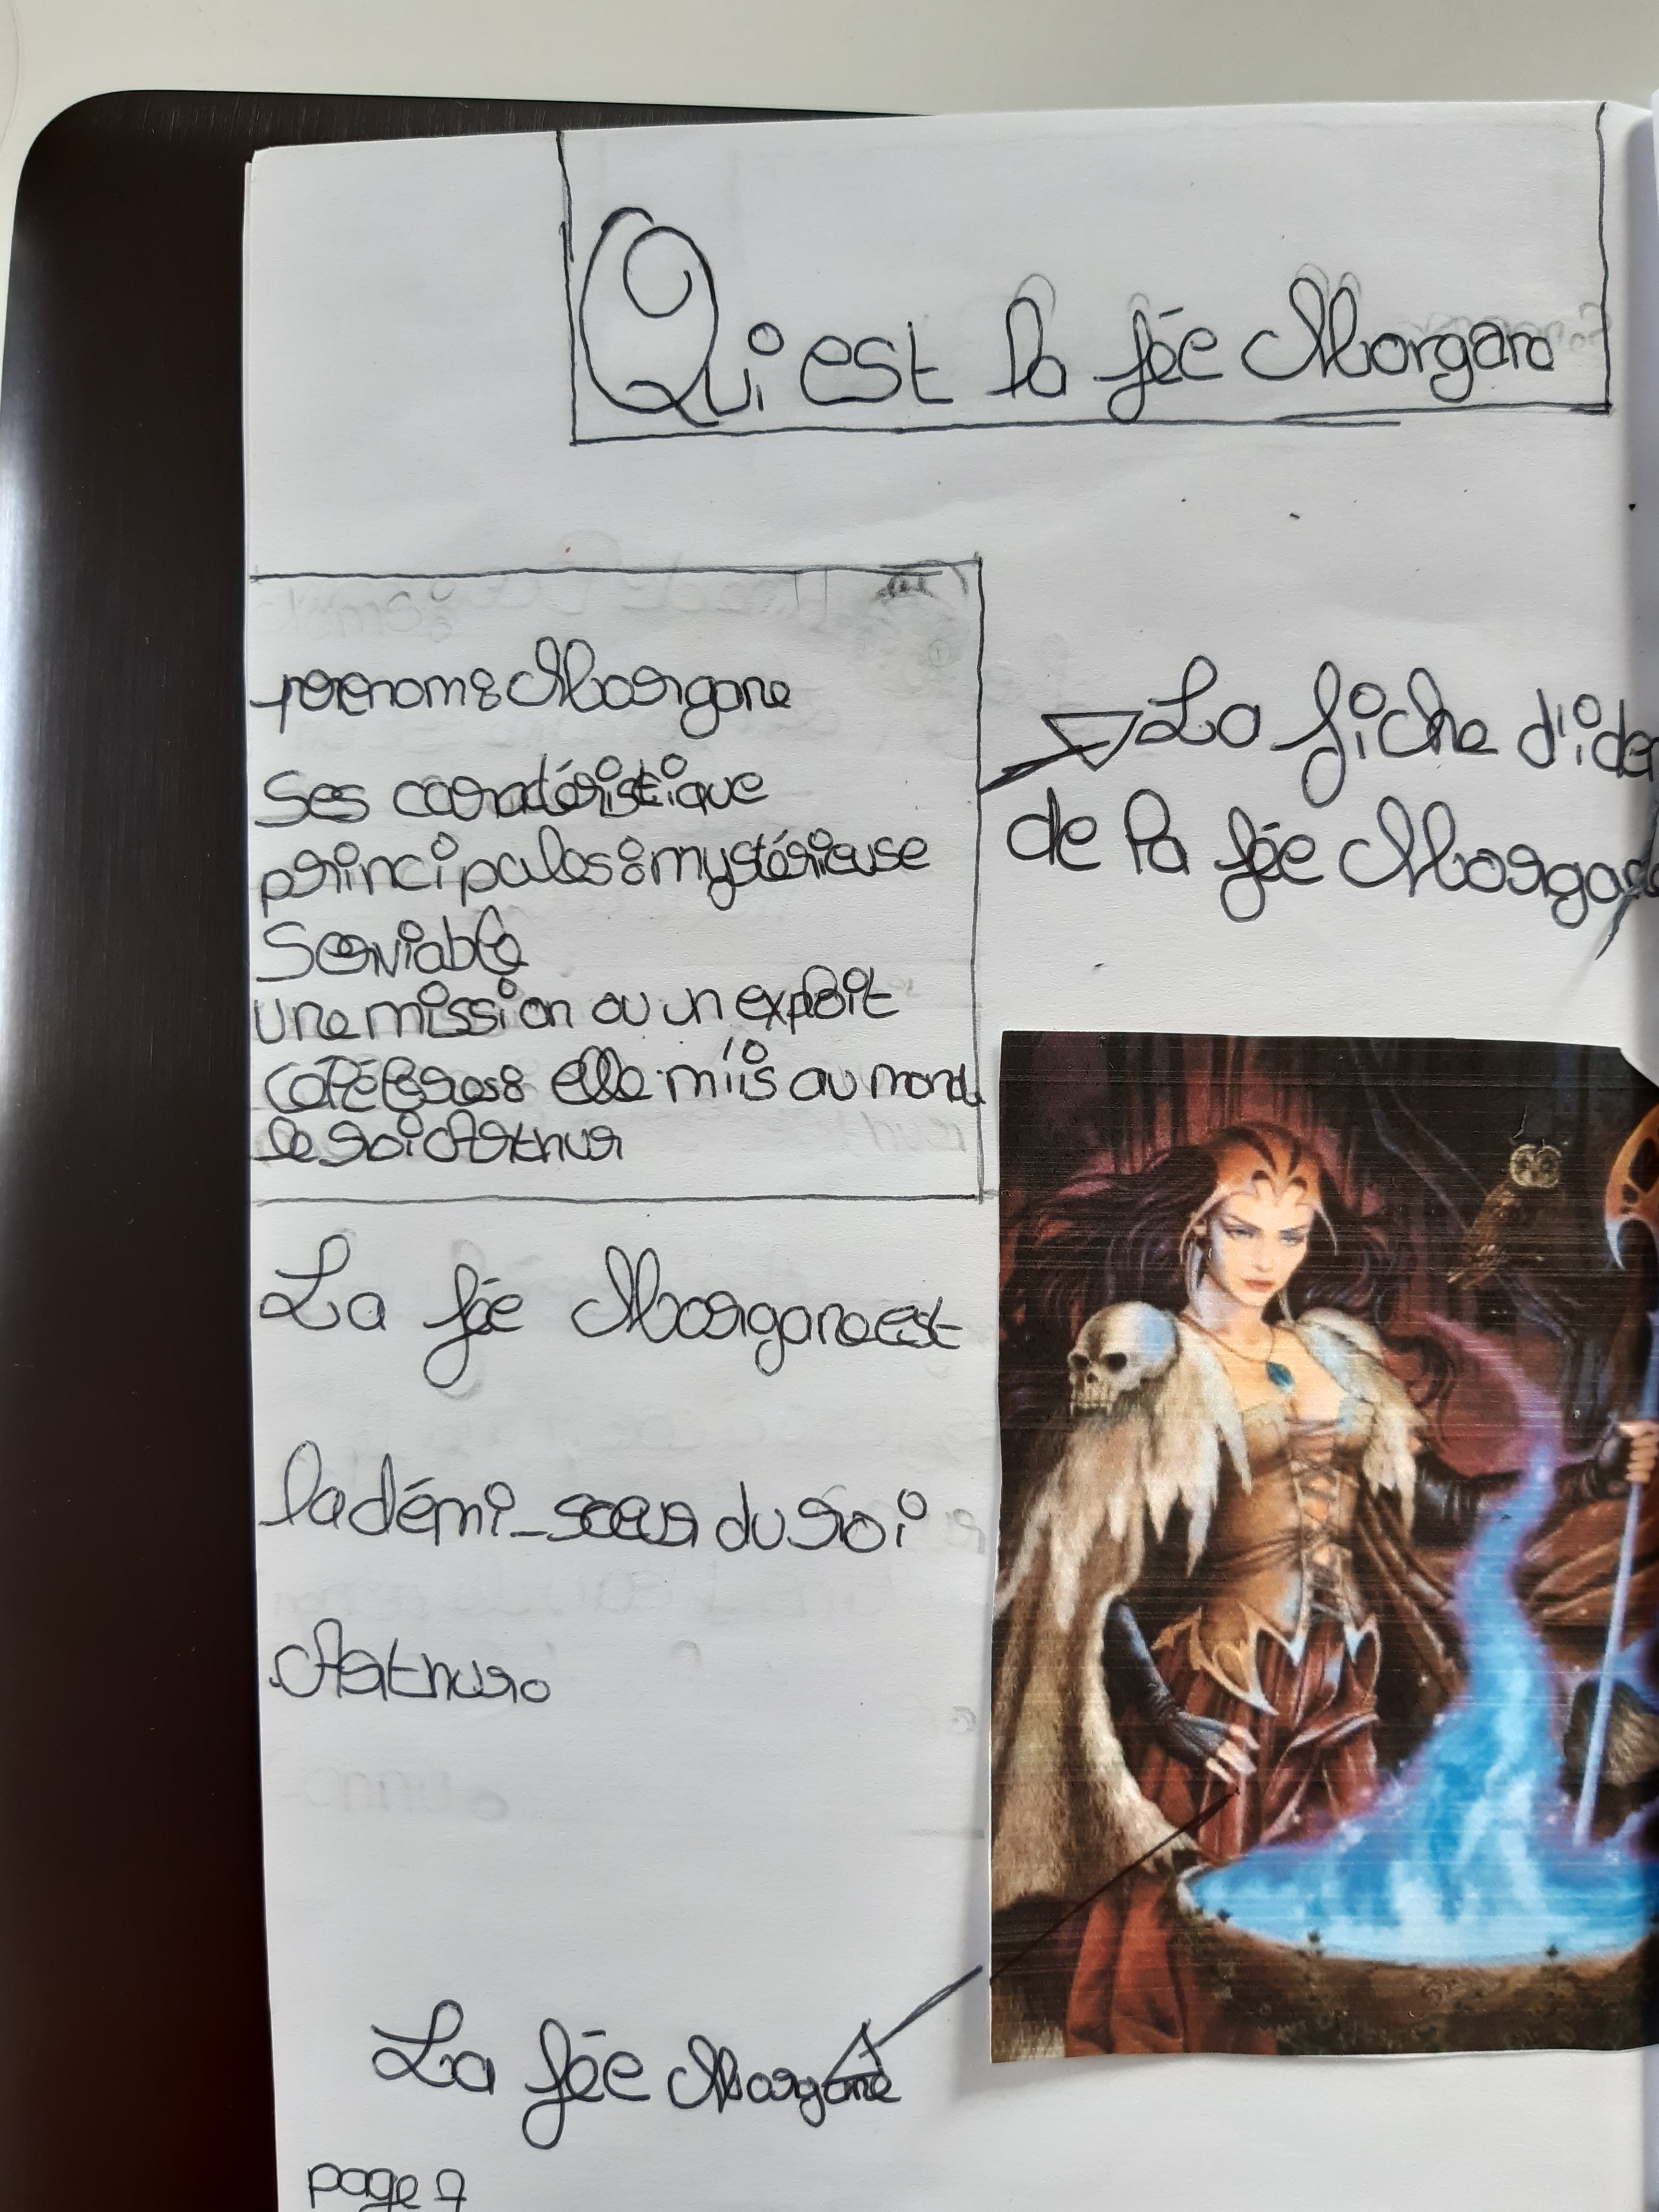 Qui est la fée Morgane
prenom: Morgane
Ses caractéristique
principales: mystérieuse
Serviable
une mission ou un exploit
célébres: elle miis au monde
le roi Arthur
La fiche d'iden
de la fée Morgane
La fée Morgane est
la démi-sœur du roi
Arthur.
La fée Morgane
page 7